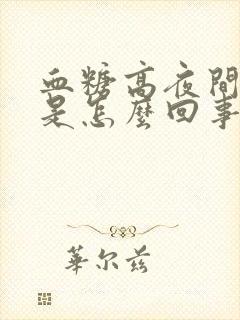 血糖高夜間
是怎麼回事
華尔兹